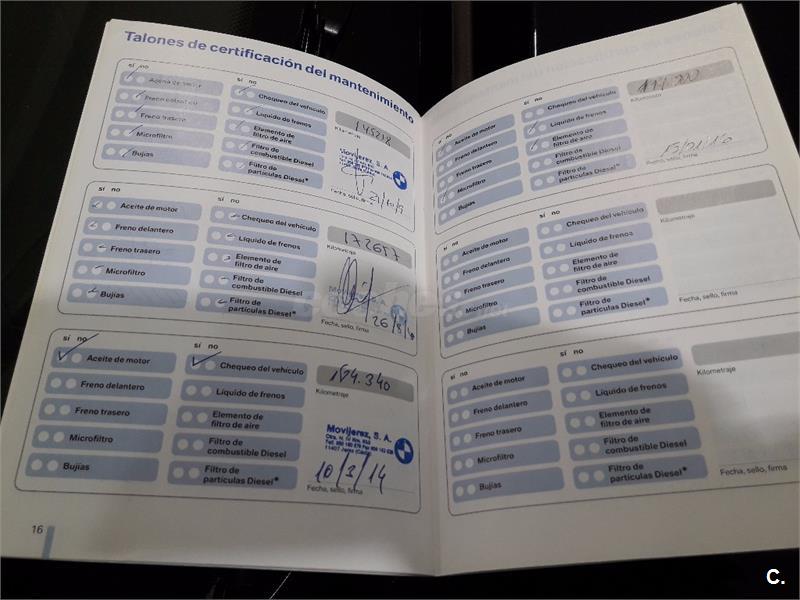 Talones de certificación del mantenimiento
sí no
sí no
Aceite de motor
Freno delantero
Freno trasero
Microfiltro
Bujías
Chequeo del vehículo
Líquido de frenos
Elemento de
filtro de aire
Filtro de
combustible Diesel
Filtro de
partículas Diesel*
Kilometraje
Movijerez, S. A.
Fecha, sello, firma
sí no
sí no
Aceite de motor
Freno delantero
Freno trasero
Microfiltro
Bujías
Chequeo del vehículo
Líquido de frenos
Elemento de
filtro de aire
Filtro de
combustible Diesel
Filtro de
partículas Diesel*
172657
Kilometraje
Fecha, sello, firma
sí no
sí no
Aceite de motor
Freno delantero
Freno trasero
Microfiltro
Bujías
Chequeo del vehículo
Líquido de frenos
Elemento de
filtro de aire
Filtro de
combustible Diesel
Filtro de
partículas Diesel*
194.340
Kilometraje
Movijerez, S. A.
10/3/14
Fecha, sello, firma
16
sí no
sí no
Aceite de motor
Freno delantero
Freno trasero
Microfiltro
Bujías
Chequeo del vehículo
Líquido de frenos
Elemento de
filtro de aire
Filtro de
combustible Diesel
Filtro de
partículas Diesel*
Kilometraje
Fecha, sello, firma
sí no
sí no
Aceite de motor
Freno delantero
Freno trasero
Microfiltro
Bujías
Chequeo del vehículo
Líquido de frenos
Elemento de
filtro de aire
Filtro de
combustible Diesel
Filtro de
partículas Diesel*
Kilometraje
Fecha, sello, firma
sí no
sí no
Aceite de motor
Freno delantero
Freno trasero
Microfiltro
Bujías
Chequeo del vehículo
Líquido de frenos
Elemento de
filtro de aire
Filtro de
combustible Diesel
Filtro de
partículas Diesel*
Kilometraje
Fecha, sello, firma
C.